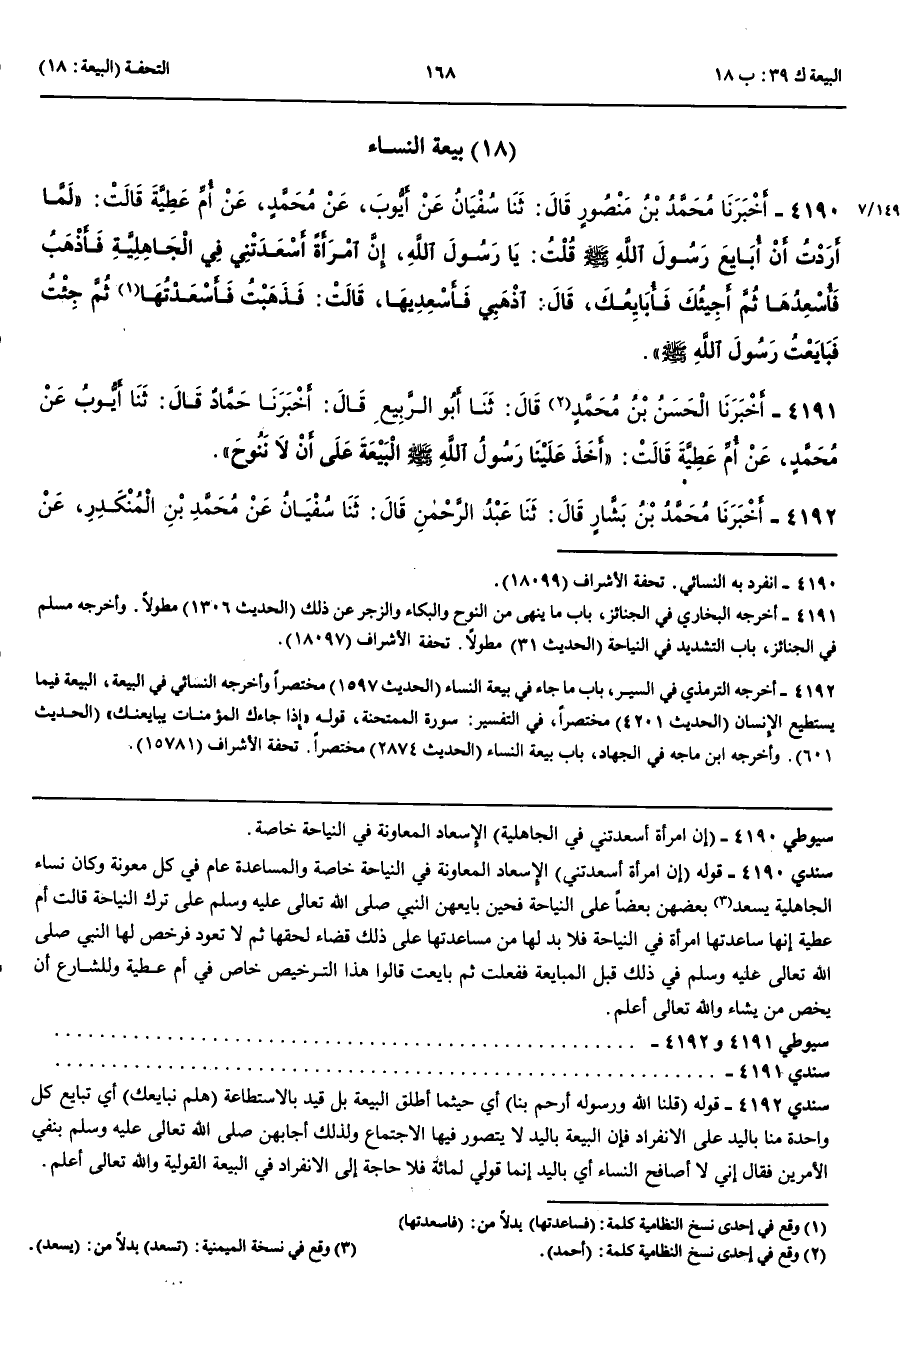 البيعة ك ٣٩: ب ١٨
١٦٨
التحفة (البيعة: ١٨)
(١٨) بيعة النساء
٧/١٤٩
٤١٩٠ - أَخْبَرَنَا مُحَمَّدُ بْنُ مَنْصُورٍ قَالَ: ثَنَا سُفْيَانُ عَنْ أَيُّوبَ، عَنْ مُحَمَّدٍ، عَنْ أُمِّ عَطِيَّةَ قَالَتْ: «لَمَّا
أَرَدْتُ أَنْ أُبَايِعَ رَسُولَ ٱللَّهِ ﷺ قُلْتُ: يَا رَسُولَ ٱللَّهِ، إِنَّ ٱمْرَأَةً أَسْعَدَتْنِي فِي الْجَاهِلِيَّةِ فَأَذْهَبُ
فَأُسْعِدُهَا ثُمَّ أَجِيئُكَ فَأُبَايِعُكَ، قَالَ: ٱذْهَبِي فَأَسْعِدِيهَا، قَالَتْ: فَذَهَبْتُ فَأَسْعَدْتُهَا(١) ثُمَّ جِئْتُ
فَبَايَعْتُ رَسُولَ ٱللَّهِ ﷺ».
٤١٩١ - أَخْبَرَنَا الْحَسَنُ بْنُ مُحَمَّدٍ(٢) قَالَ: ثَنَا أَبُو الرَّبِيعِ قَالَ: أَخْبَرَنَا حَمَّادٌ قَالَ: ثَنَا أَيُّوبُ عَنْ
مُحَمَّدٍ، عَنْ أُمِّ عَطِيَّةَ قَالَتْ: «أَخَذَ عَلَيْنَا رَسُولُ ٱللَّهِ ﷺ الْبَيْعَةَ عَلَى أَنْ لَا نَنُوحَ».
٤١٩٢ - أَخْبَرَنَا مُحَمَّدُ بْنُ بَشَّارٍ قَالَ: ثَنَا عَبْدُ الرَّحْمٰنِ قَالَ: ثَنَا سُفْيَانُ عَنْ مُحَمَّدِ بْنِ الْمُنْكَدِرِ، عَنْ
٤١٩٠ - انفرد به النسائي. تحفة الأشراف (١٨٠٩٩).
٤١٩١ - أخرجه البخاري في الجنائز، باب ما ينهى من النوح والبكاء والزجر عن ذلك (الحديث ١٣٠٦) مطولاً. وأخرجه مسلم
في الجنائز، باب التشديد في النياحة (الحديث ٣١) مطولاً. تحفة الأشراف (١٨٠٩٧).
٤١٩٢ - أخرجه الترمذي في السير، باب ما جاء في بيعة النساء (الحديث ١٥٩٧) مختصراً وأخرجه النسائي في البيعة، البيعة فيما
يستطيع الإنسان (الحديث ٤٢٠١) مختصراً، في التفسير: سورة الممتحنة، قوله «إذا جاءك المؤمنات يبايعنك» (الحديث
٦٠١). وأخرجه ابن ماجه في الجهاد، باب بيعة النساء (الحديث ٢٨٧٤) مختصراً. تحفة الأشراف (١٥٧٨١).
سيوطي ٤١٩٠ - (إن امرأة أسعدتني في الجاهلية) الإسعاد المعاونة في النياحة خاصة.
سندي ٤١٩٠ - قوله (إن امرأة أسعدتني) الإسعاد المعاونة في النياحة خاصة والمساعدة عام في كل معونة وكان نساء
الجاهلية يسعد(٣) بعضهن بعضاً على النياحة فحين بايعهن النبي صلى الله تعالى عليه وسلم على ترك النياحة قالت أم
عطية إنها ساعدتها امرأة في النياحة فلا بد لها من مساعدتها على ذلك قضاء لحقها ثم لا تعود فرخص لها النبي صلى
الله تعالى عليه وسلم في ذلك قبل المبايعة ففعلت ثم بايعت قالوا هذا الترخيص خاص في أم عطية وللشارع أن
يخص من يشاء والله تعالى أعلم.
سيوطي ٤١٩١ و ٤١٩٢ - ..................................................
سندي ٤١٩١ - ..........................................................
سندي ٤١٩٢ - قوله (قلنا الله ورسوله أرحم بنا) أي حيثما أطلق البيعة بل قيد بالاستطاعة (هلم نبايعك) أي تبايع كل
واحدة منا باليد على الانفراد فإن البيعة باليد لا يتصور فيها الاجتماع ولذلك أجابهن صلى الله تعالى عليه وسلم بنفي
الأمرين فقال إني لا أصافح النساء أي باليد إنما قولي لمائة فلا حاجة إلى الانفراد في البيعة القولية والله تعالى أعلم.
(١) وقع في إحدى نسخ النظامية كلمة: (فساعدتها) بدلاً من: (فاسعدتها)
(٢) وقع في إحدى نسخ النظامية كلمة: (أحمد).
(٣) وقع في نسخة الميمنية: (تسعد) بدلاً من: (يسعد).